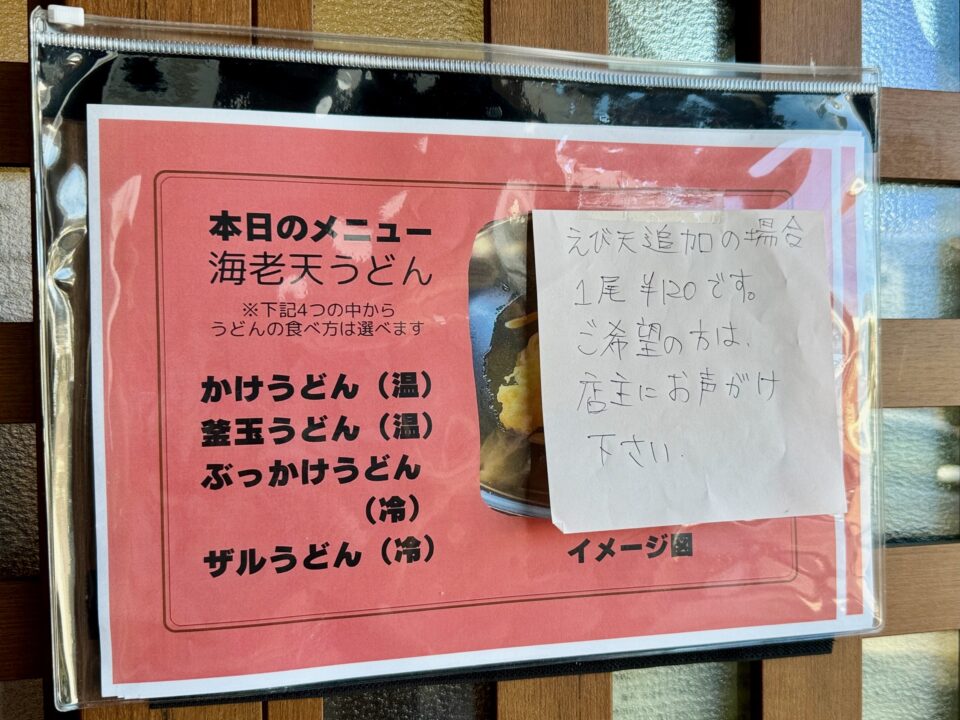 本日のメニュー
海老天うどん
※下記4つの中から
うどんの食べ方は選べます
かけうどん（温）
釜玉うどん（温）
ぶっかけうどん
（冷）
ザルうどん（冷）
えび天追加の場合
1尾¥120です。
ご希望の方は、
店主にお声がけ
下さい.
イメージ図